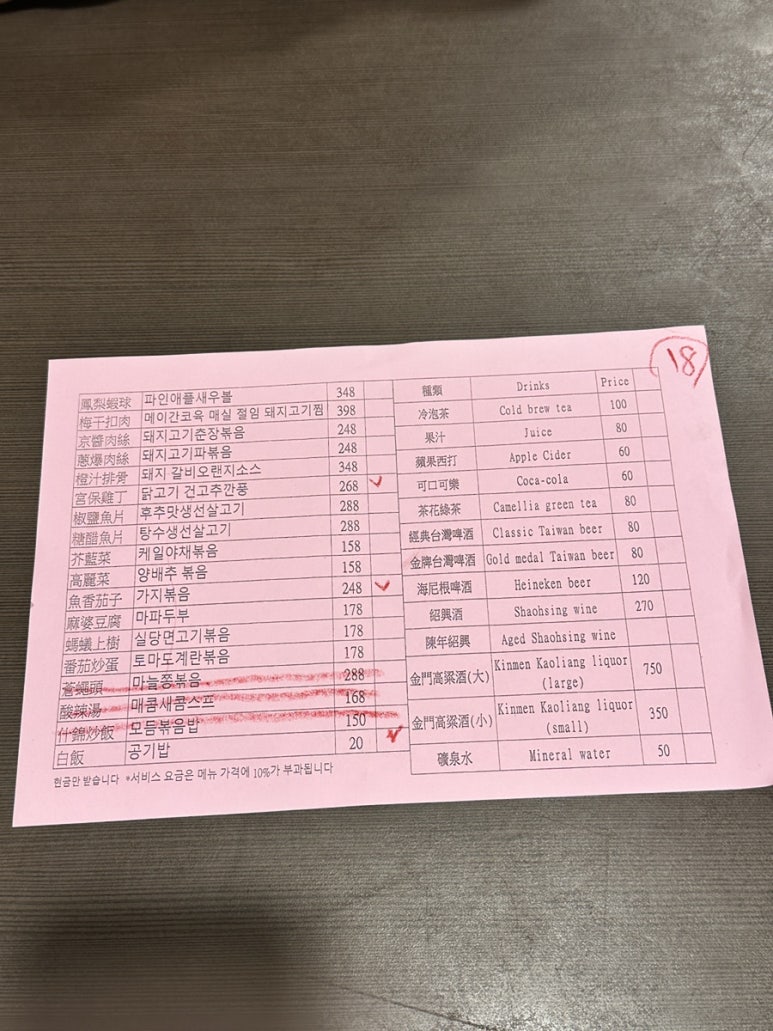 18
鳳梨蝦球 파인애플새우볼 348
梅干扣肉 메이간코육 매실 절임 돼지고기찜 398
京醬肉絲 돼지고기춘장볶음 248
蔥爆肉絲 돼지고기파볶음 248
橙汁排骨 돼지 갈비오랜지소스 348
宮保雞丁 닭고기 건고추깐풍 268
椒鹽魚片 후추맛생선살고기 288
糖醋魚片 탕수생선살고기 288
芥藍菜 케일야채볶음 158
高麗菜 양배추 볶음 158
魚香茄子 가지볶음 248
麻婆豆腐 마파두부 178
螞蟻上樹 실당면고기볶음 178
番茄炒蛋 토마도계란볶음 178
蒼蠅頭 마늘쫑볶음 288
酸辣湯 매콤새콤스프 168
什錦炒飯 모듬볶음밥 150
白飯 공기밥 20
현금만 받습니다 *서비스 요금은 메뉴 가격에 10%가 부과됩니다
種類 Drinks Price
冷泡茶 Cold brew tea 100
果汁 Juice 80
蘋果西打 Apple Cider 60
可口可樂 Coca-cola 60
茶花綠茶 Camellia green tea 80
經典台灣啤酒 Classic Taiwan beer 80
金牌台灣啤酒 Gold medal Taiwan beer 80
海尼根啤酒 Heineken beer 120
紹興酒 Shaohsing wine 270
陳年紹興 Aged Shaohsing wine
金門高粱酒(大) Kinmen Kaoliang liquor 750
(large)
金門高粱酒(小) Kinmen Kaoliang liquor 350
(small)
礦泉水 Mineral water 50